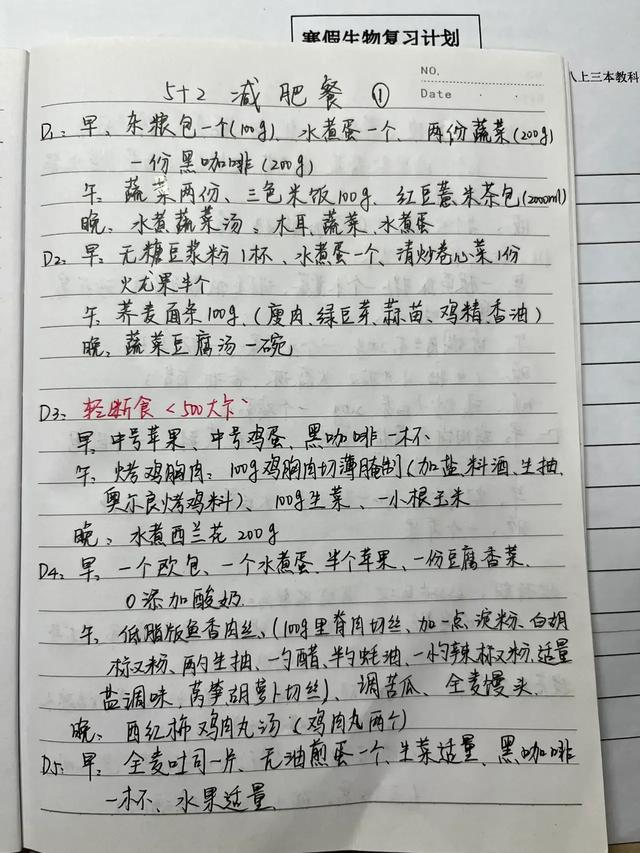 寒假生物复习计划
八上三本教科
NO.
Date
5+2 减肥餐 ①
D1: 早、杂粮包一个(100g)、水煮蛋一个、两份蔬菜(200g)
一份黑咖啡(200g)
午、蔬菜两份、三色米饭100g、红豆薏米茶包(2000ml)
晚、水煮蔬菜汤: 木耳、蔬菜、水煮蛋
D2: 早: 无糖豆浆粉1杯、水煮蛋一个、清炒卷心菜1份
火龙果半个
午、荞麦面条100g、(瘦肉、绿豆芽、蒜苗、鸡精、香油)
晚、蔬菜豆腐汤一碗
D3: 轻断食<500大卡
早: 中号苹果、中号鸡蛋、黑咖啡一杯
午: 烤鸡胸肉: 100g鸡胸肉切薄腌制(加盐、料酒、生抽、
奥尔良烤鸡料)、100g生菜、一小根玉米
晚: 水煮西兰花200g
D4: 早、一个欧包、一个水煮蛋、半个苹果、一份豆腐香菜、
0添加酸奶
午: 低脂版鱼香肉丝、(100g里脊肉切丝、加一点淀粉、白胡
椒粉、两勺生抽、一勺醋、半勺蚝油、一小勺辣椒粉、适量
盐调味、莴笋胡萝卜切丝)、调苦瓜、全麦馒头、
晚: 西红柿鸡肉丸汤(鸡肉丸两个)
D5: 早: 全麦吐司一片、无油煎蛋一个、生菜适量、黑咖啡
一杯、水果适量、